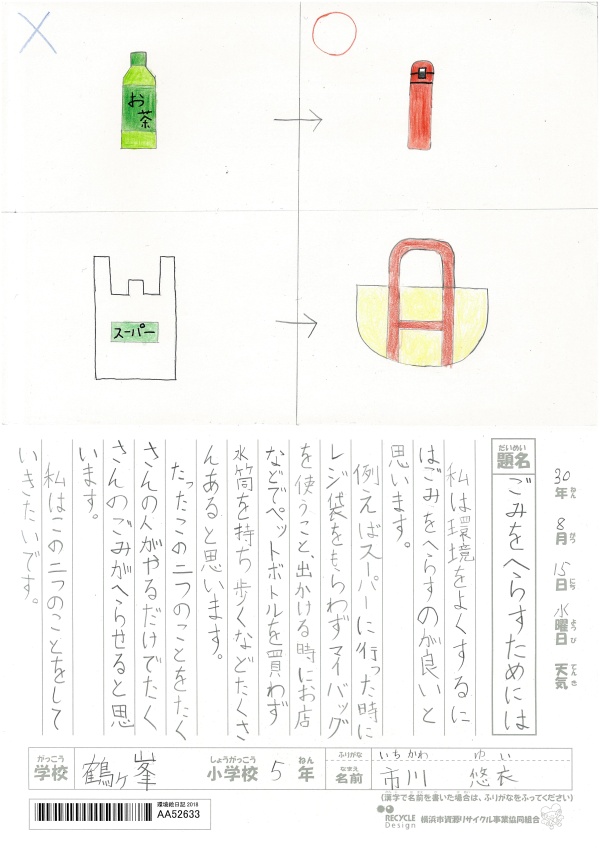 お
茶
スーパー
30年 8月 15日 水曜日 天気
ねん がつ にち ようび てんき
だいめい
題名
ごみをへらすためには
私は環境をよくするに
はごみをへらすのが良いと
思います。
例えばスーパーに行った時に
レジ袋をもらわずマイバッグ
を使うこと、出かける時にお店
などでペットボトルを買わず
水筒を持ち歩くなどたくさ
んあると思います。
たったこの二つのことをたく
さんの人がやるだけでたく
さんのごみがへらせると思
います。
私はこの二つのことをして
いきたいです。
がっこう しょうがっこう ねん ふりがな いちかわ ゆい
学校 鶴ヶ峯 小学校 5年 なまえ 名前 市川 悠衣
(漢字で名前を書いた場合は、ふりがなをふってください)
環境絵日記 2018
AA52633
RECYCLE Design 横浜市資源リサイクル事業協同組合